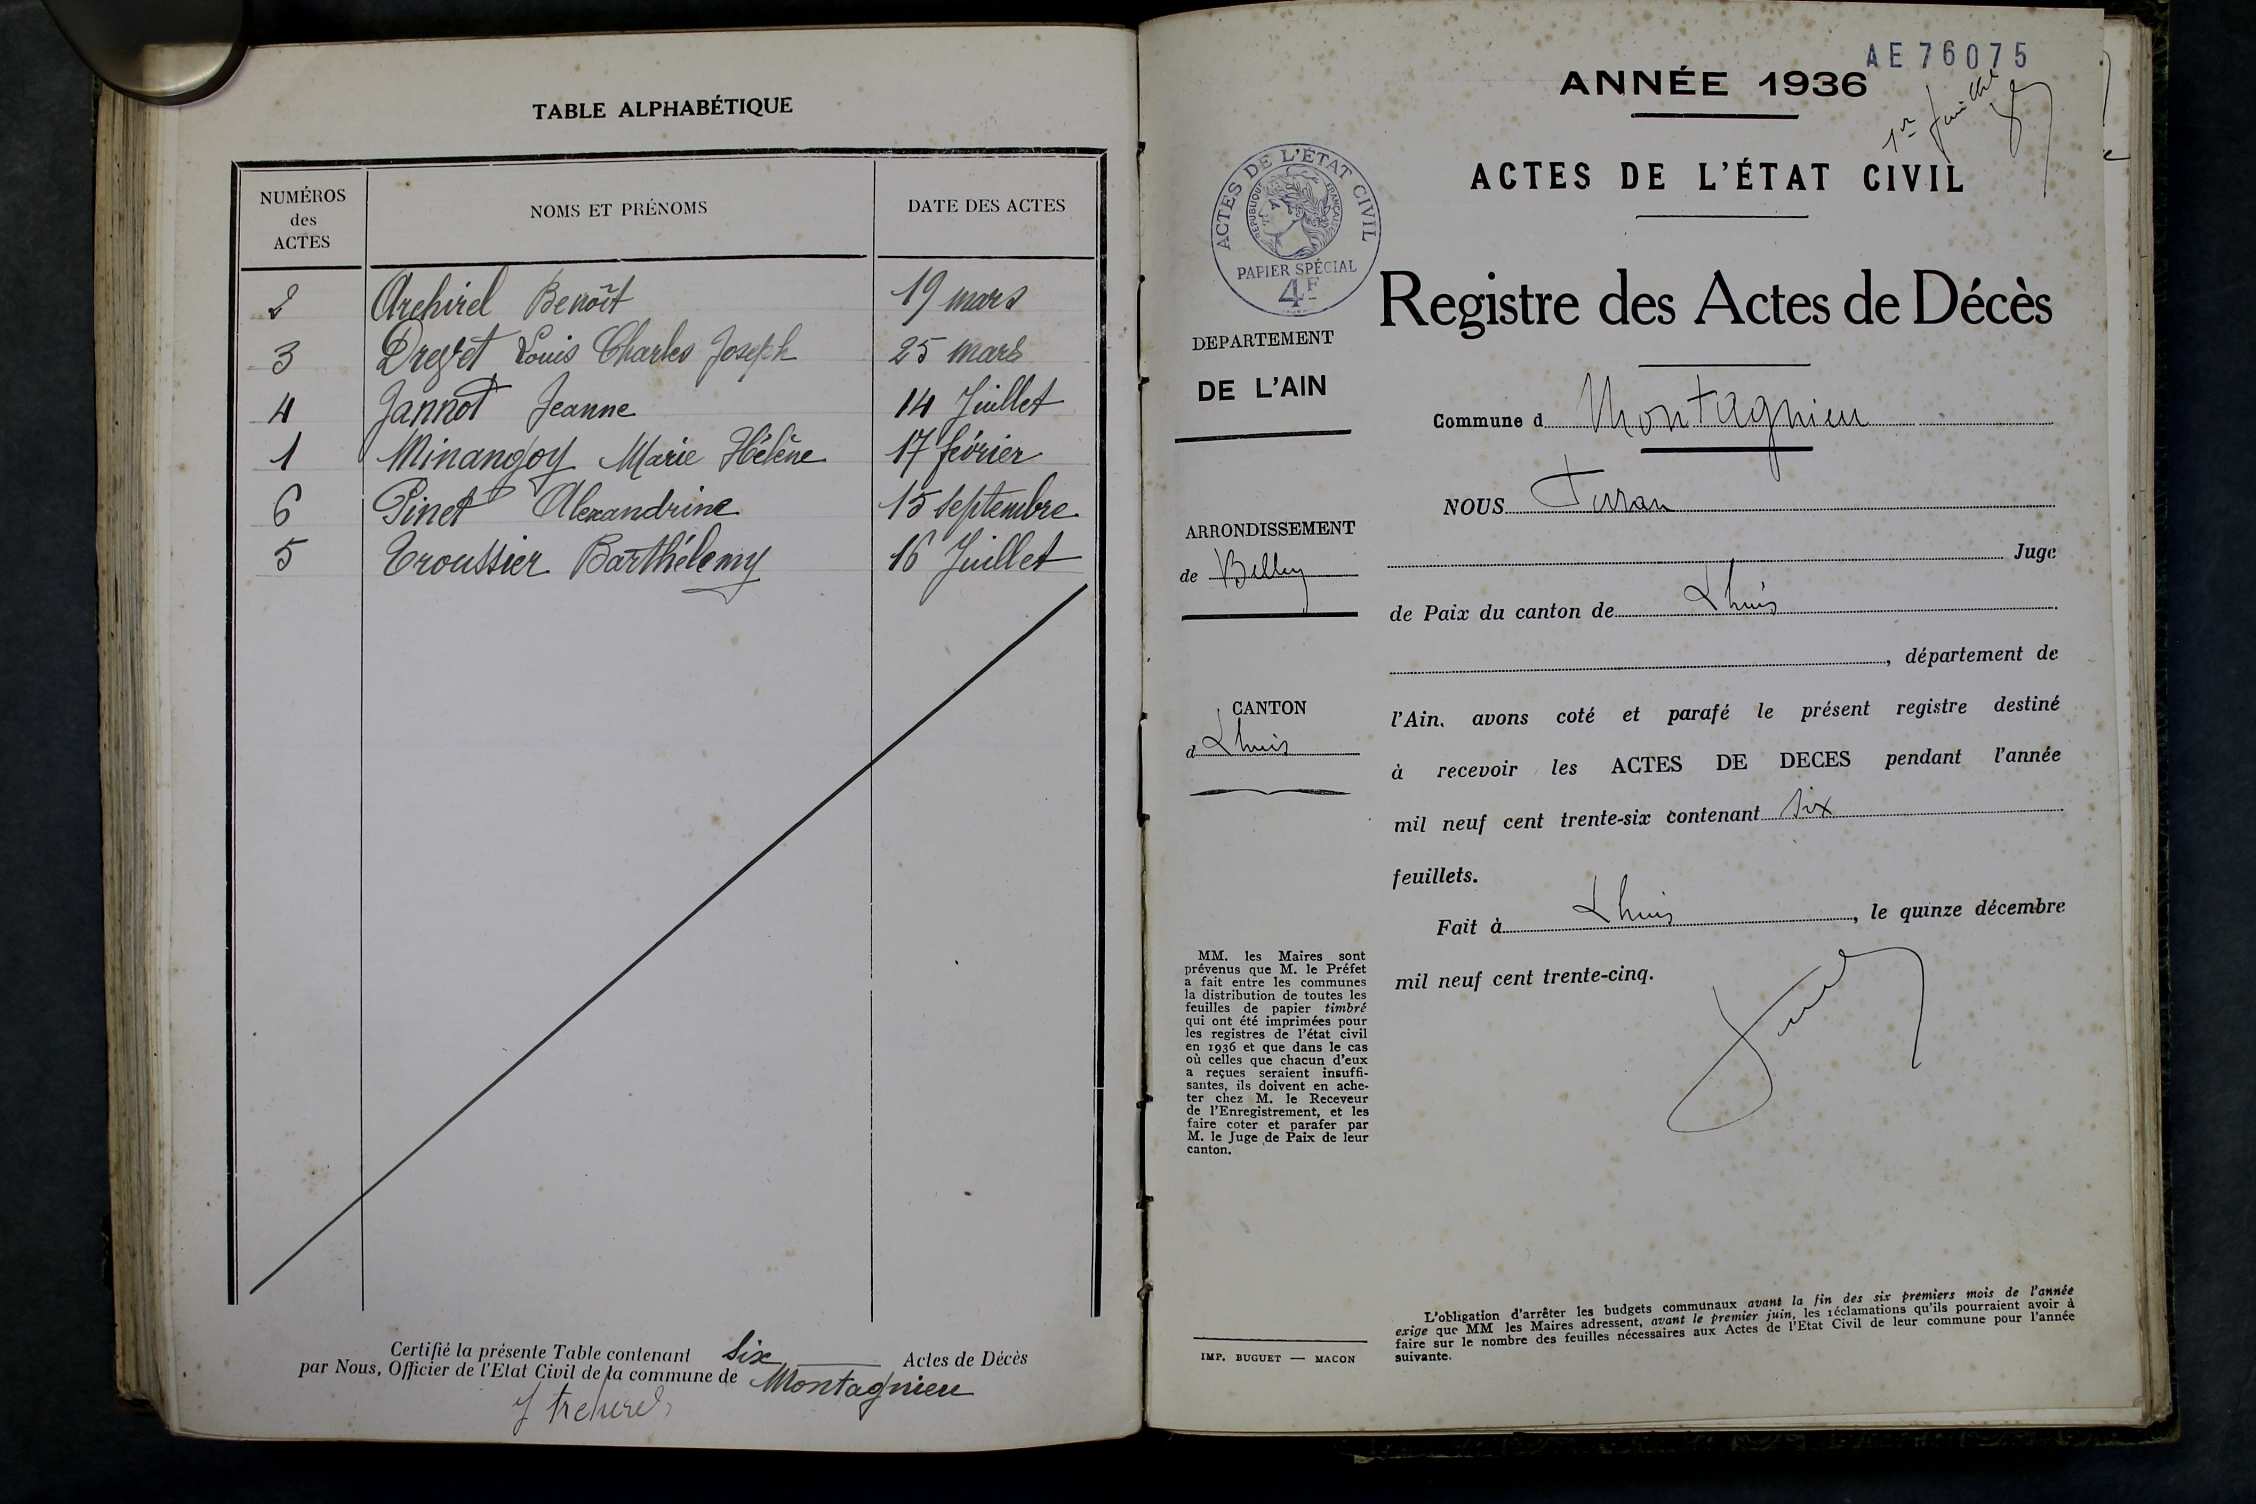 TABLE ALPHABÉTIQUE
NUMÉROS des ACTES
NOMS ET PRÉNOMS
DATE DES ACTES
2 Archirel Benoît 19 mars
3 Drevet Louis Charles Joseph 25 mars
4 Jannot Jeanne 14 Juillet
1 Minangoy Marie Hélène 17 février
6 Pinet Alexandrine 15 septembre
5 Troussier Barthélemy 16 Juillet
Certifié la présente Table contenant six Actes de Décès
par Nous, Officier de l'Etat Civil de la commune de Montagnieu
AE76075
ANNÉE 1936
1er feuillet
ACTES DE L'ÉTAT CIVIL
ACTES DE L'ÉTAT CIVIL
RÉPUBLIQUE FRANÇAISE
PAPIER SPÉCIAL
4F
Registre des Actes de Décès
DEPARTEMENT
DE L'AIN
Commune d Montagnieu
ARRONDISSEMENT
de Belley
CANTON
d Lhuis
NOUS
Juge
de Paix du canton de Lhuis
, département de
l'Ain, avons coté et parafé le présent registre destiné
à recevoir les ACTES DE DECES pendant l'année
mil neuf cent trente-six contenant six
feuillets.
Fait à Lhuis, le quinze décembre
mil neuf cent trente-cinq.
MM. les Maires sont
prévenus que M. le Préfet
a fait entre les communes
la distribution de toutes les
feuilles de papier timbré
qui ont été imprimées pour
les registres de l'état civil
en 1936 et que dans le cas
où celles que chacun d'eux
a reçues seraient insuffi-
santes, ils doivent en ache-
ter chez M. le Receveur
de l'Enregistrement, et les
faire coter et parafer par
M. le Juge de Paix de leur
canton.
IMP. BUGUET — MACON
L'obligation d'arrêter les budgets communaux avant la fin des six premiers mois de l'année
exige que MM les Maires adressent, avant le premier juin, les réclamations qu'ils pourraient avoir à
faire sur le nombre des feuilles nécessaires aux Actes de l'Etat Civil de leur commune pour l'année
suivante.